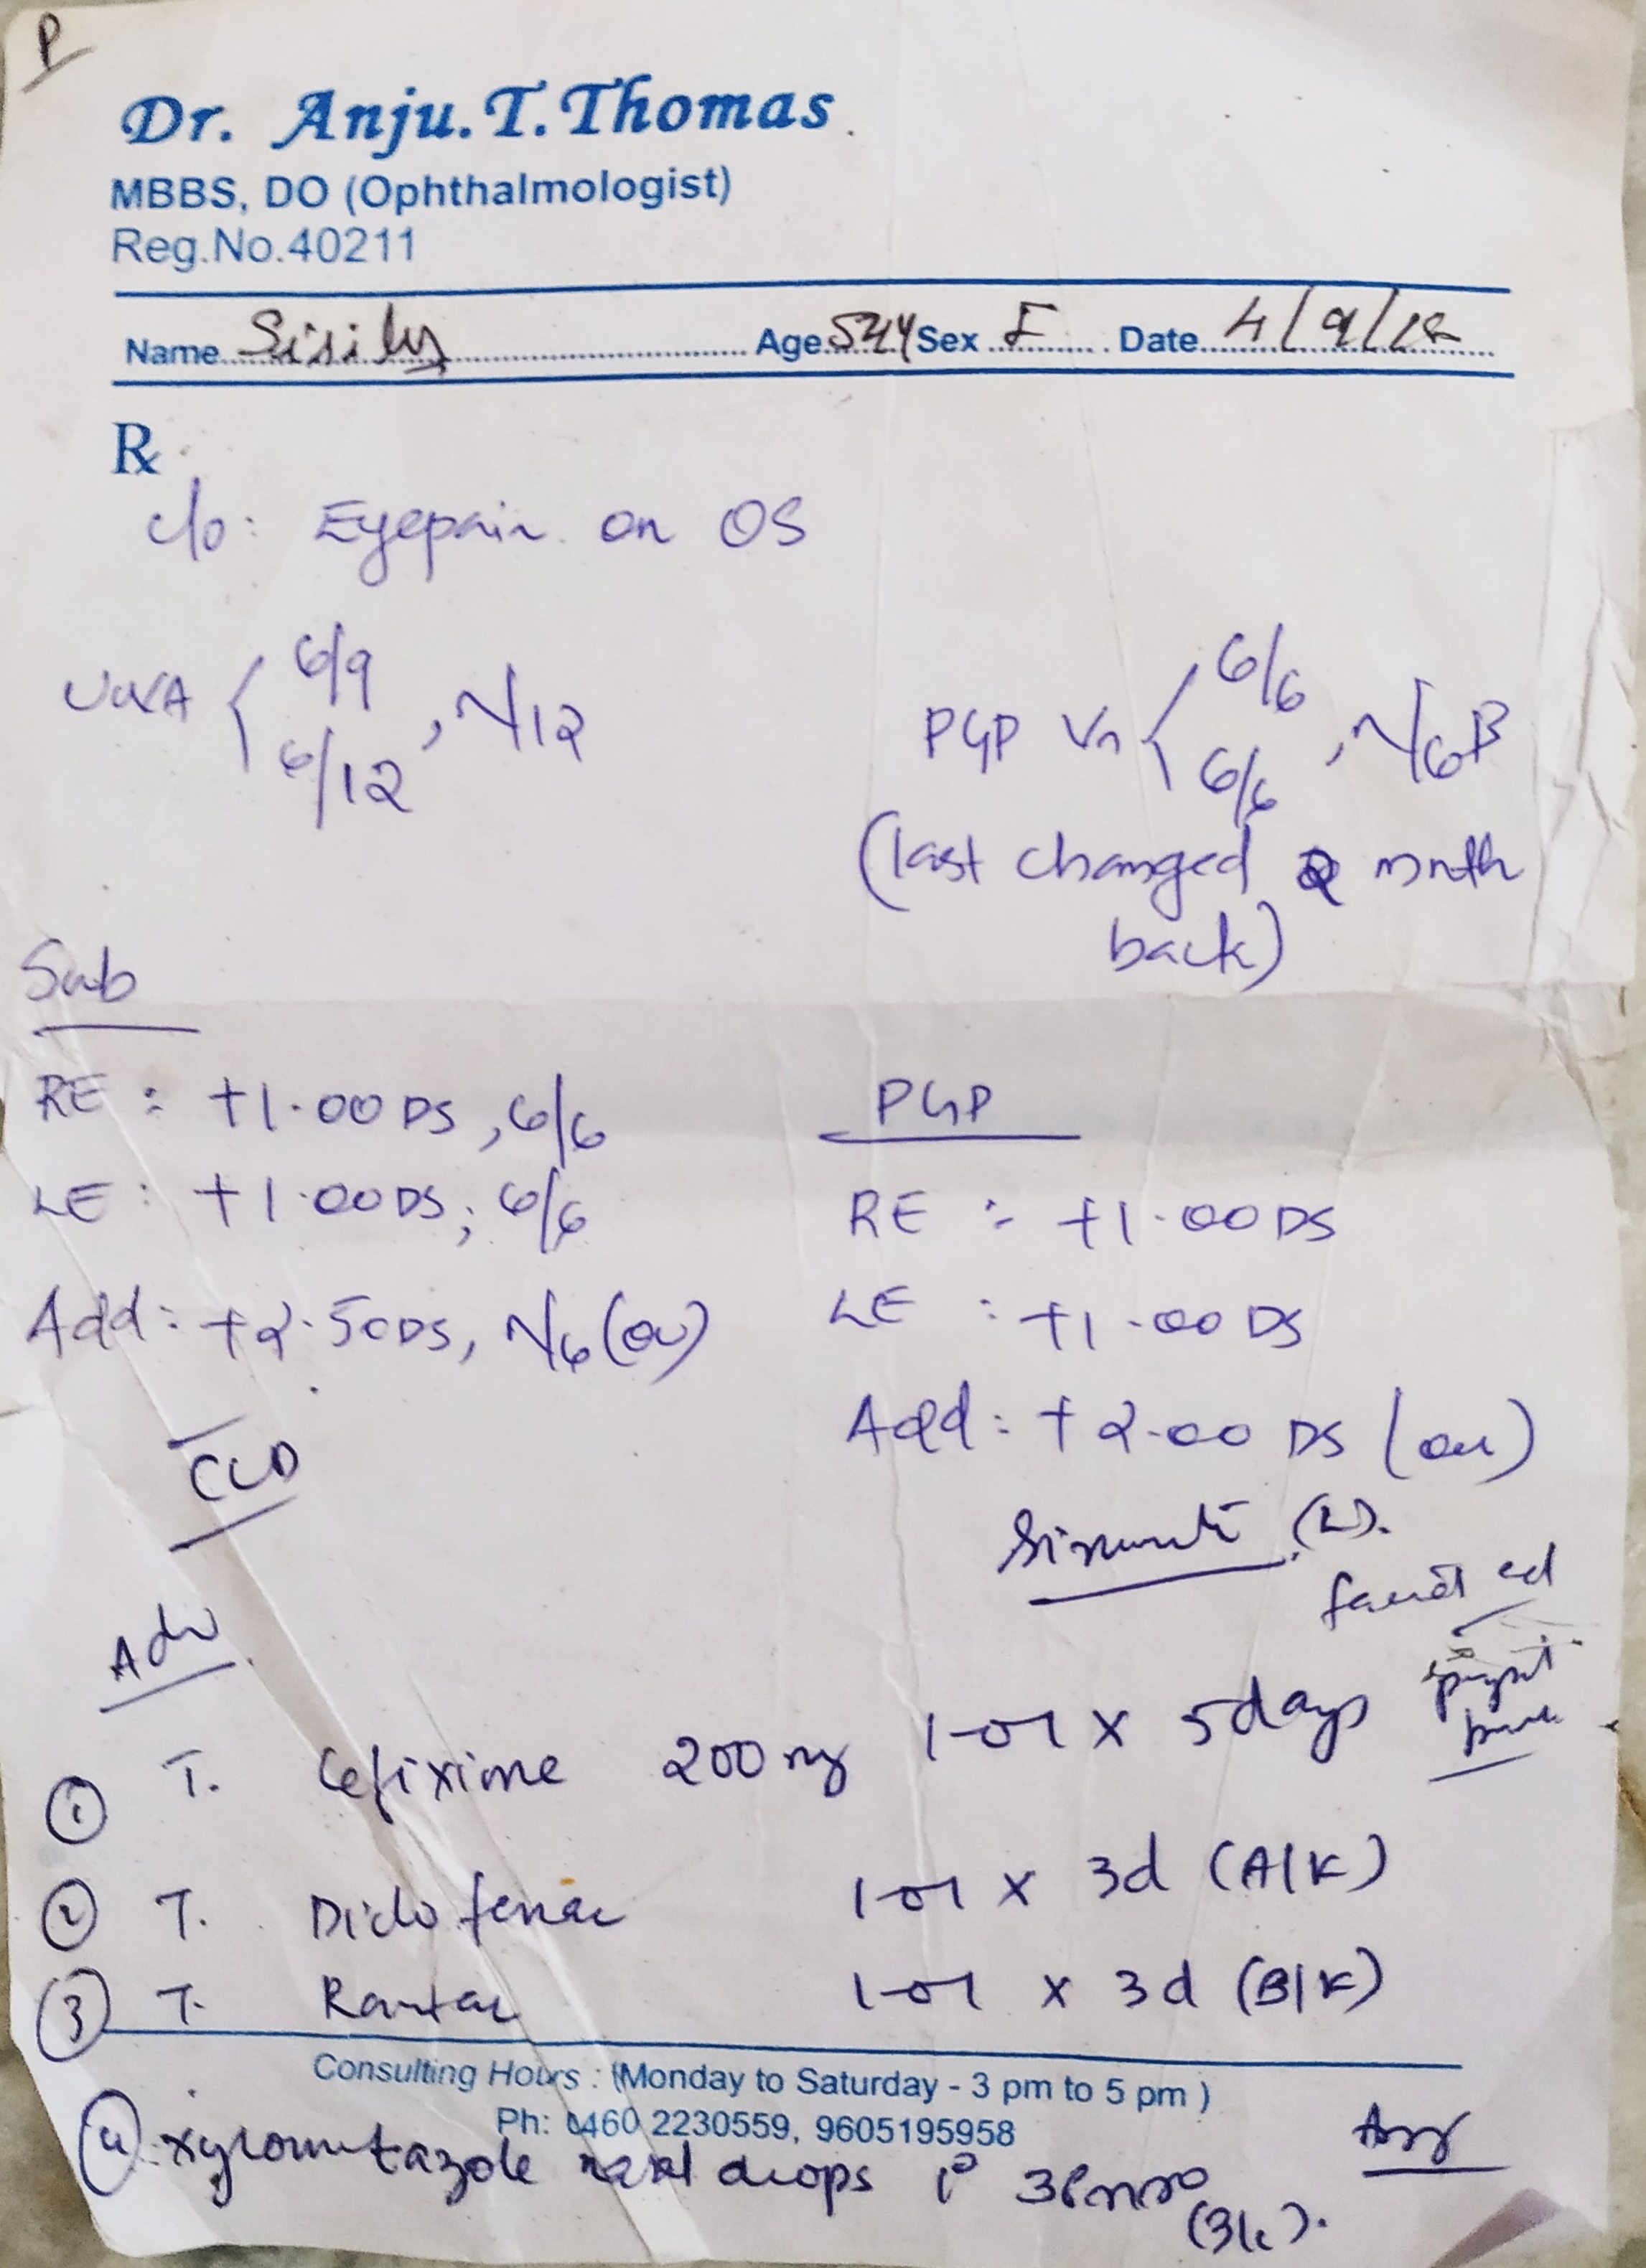 P
Dr. Anju.T.Thomas
MBBS, DO (Ophthalmologist)
Reg.No.40211
Name Sisily Age 54y Sex F Date 4/9/18
Rx
c/o: Eyepain on OS
UCVA 6/9 6/12 , N/12
PGP Vn 6/6 6/6 , N/6 B
(last changed 2 mnth
back)
Sub
RE : +1.00 DS , 6/6
LE : +1.00 DS ; 6/6
Add : +2.50 DS, N/6 (ou)
PGP
RE :- +1.00 DS
LE : +1.00 DS
Add : +2.00 DS (ou)
(L).
Adv
1 T. Cefixime 200 mg 1-0-1 x 5 days
2 T. Diclofenac 1-0-1 x 3d (A/K)
3 T. Rantac 1-0-1 x 3d (B/K)
Consulting Hours : (Monday to Saturday - 3 pm to 5 pm )
Ph: 0460 2230559, 9605195958
4 xylometazole nasal drops